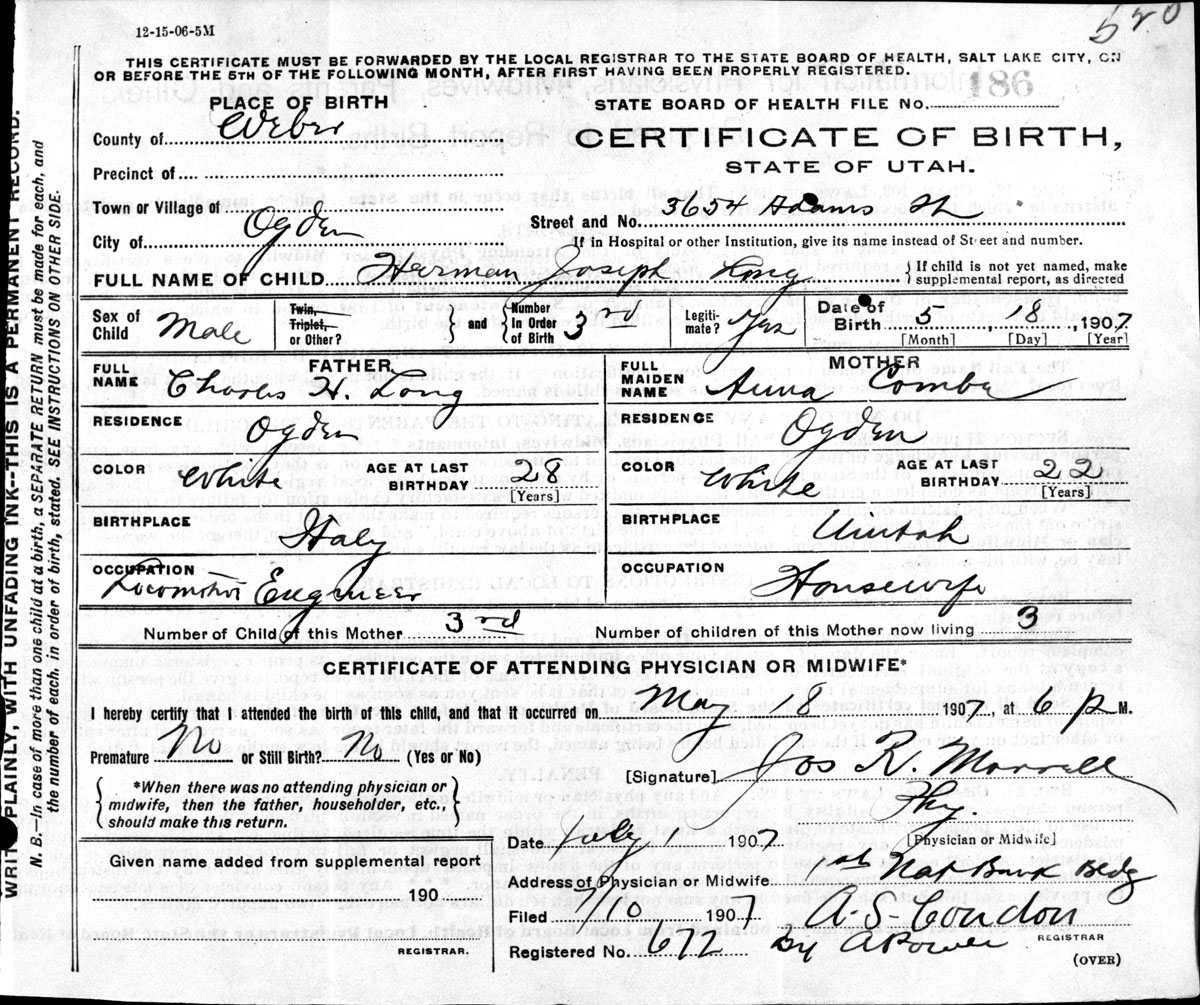 520
12-15-06-5M
THIS CERTIFICATE MUST BE FORWARDED BY THE LOCAL REGISTRAR TO THE STATE BOARD OF HEALTH, SALT LAKE CITY, ON
OR BEFORE THE 5TH OF THE FOLLOWING MONTH, AFTER FIRST HAVING BEEN PROPERLY REGISTERED.
PLACE OF BIRTH
STATE BOARD OF HEALTH FILE NO. 186
County of Weber
CERTIFICATE OF BIRTH,
STATE OF UTAH.
Precinct of
Town or Village of Ogden
Street and No. 3654 Adams
City of
If in Hospital or other Institution, give its name instead of Street and number.
FULL NAME OF CHILD Herman Joseph Long { If child is not yet named, make
supplemental report, as directed
Sex of Child Male Twin, Triplet, or Other? } and { Number In Order of Birth 3rd Legiti- mate? Yes Date of Birth 5, 18, 1907
[Month] [Day] [Year]
FATHER MOTHER
FULL NAME Charles H. Long FULL MAIDEN NAME Anna Combe
RESIDENCE Ogden RESIDENCE Ogden
COLOR White AGE AT LAST BIRTHDAY 28 [Years] COLOR White AGE AT LAST BIRTHDAY 22 [Years]
BIRTHPLACE Italy BIRTHPLACE Uintah
OCCUPATION Locomotive Engineer OCCUPATION Housewife
Number of Child of this Mother 3rd Number of children of this Mother now living 3
CERTIFICATE OF ATTENDING PHYSICIAN OR MIDWIFE*
I hereby certify that I attended the birth of this child, and that it occurred on May 18 1907 at 6 P M.
Premature No or Still Birth? No (Yes or No)
[Signature] Jos R. Morrell
{ *When there was no attending physician or
midwife, then the father, householder, etc.,
should make this return. }
Phy.
[Physician or Midwife]
Date July 1 1907
Given name added from supplemental report
Address of Physician or Midwife 1st Nat Bank Bldg
190
Filed 7/10 1907 A-S-Condon
REGISTRAR.
Registered No. 672 By A Power REGISTRAR
(OVER)
WRITE PLAINLY, WITH UNFADING INK--THIS IS A PERMANENT RECORD.
N. B.—In case of more than one child at a birth, a SEPARATE RETURN must be made for each, and
the number of each, in order of birth, stated. SEE INSTRUCTIONS ON OTHER SIDE.